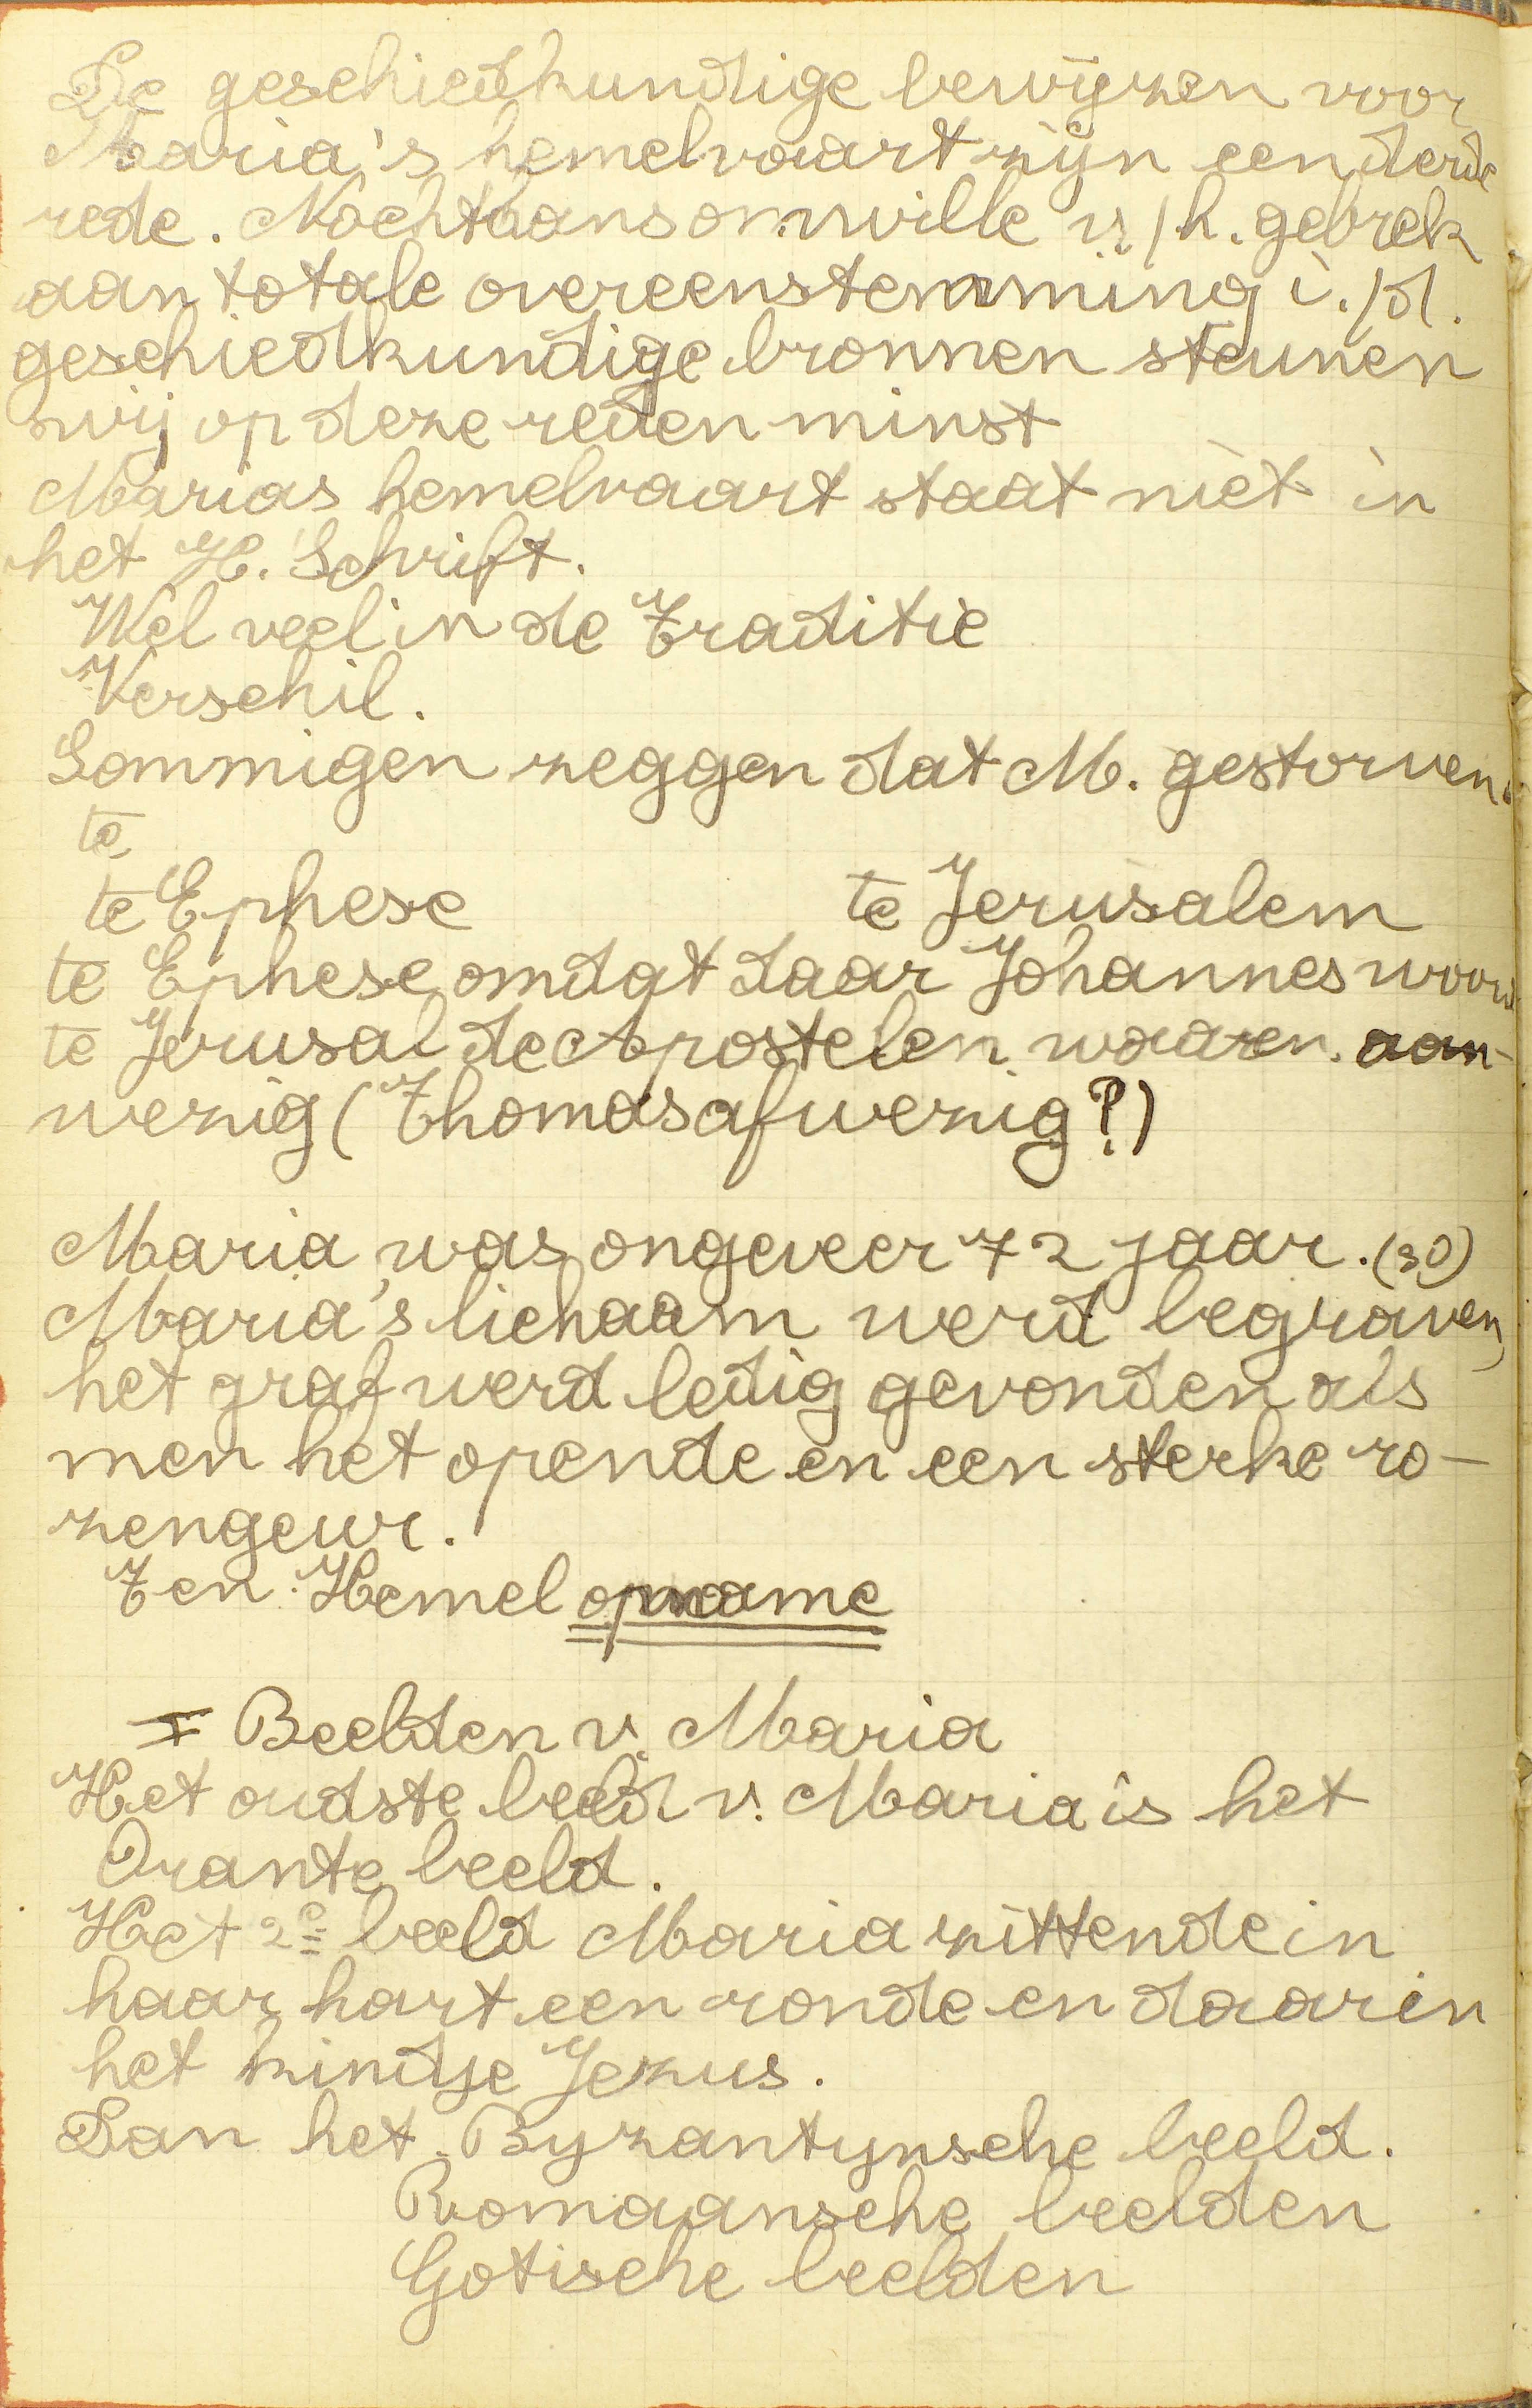 De geschiedkundige bewijzen voor
Maria's hemelvaart zijn een derde
rede. Nochtbans omwille v/h. gebrek
aan totale overeenstemming i./d.
geschiedkundige bronnen steunen
wij op deze reden minst
Marias hemelvaart staat niet in
het H. Schrift.
Wel veel in de Traditie
Verschil.
Sommigen zeggen dat M. gestorven
te
te Ephese te Jerusalem
te Ephese omdat daar Johannes
te Jerusal de Apostelen waren aan-
wezig (Thomas afwezig?)
Maria was ongeveer 72 jaar. (30)
Maria's lichaam werd begraven,
het graf werd ledig gevonden als
men het opende en een sterke ro-
zengeur.
Ten Hemel opname
I Beelden v. Maria
Het oudste beeld v. Maria is het
Orante beeld.
Het 2e beeld Maria zittende in
haar hart een ronde en daarin
het kindje Jezus.
Dan het Byzantynsche beeld.
Romaansche beelden
Gotische beelden